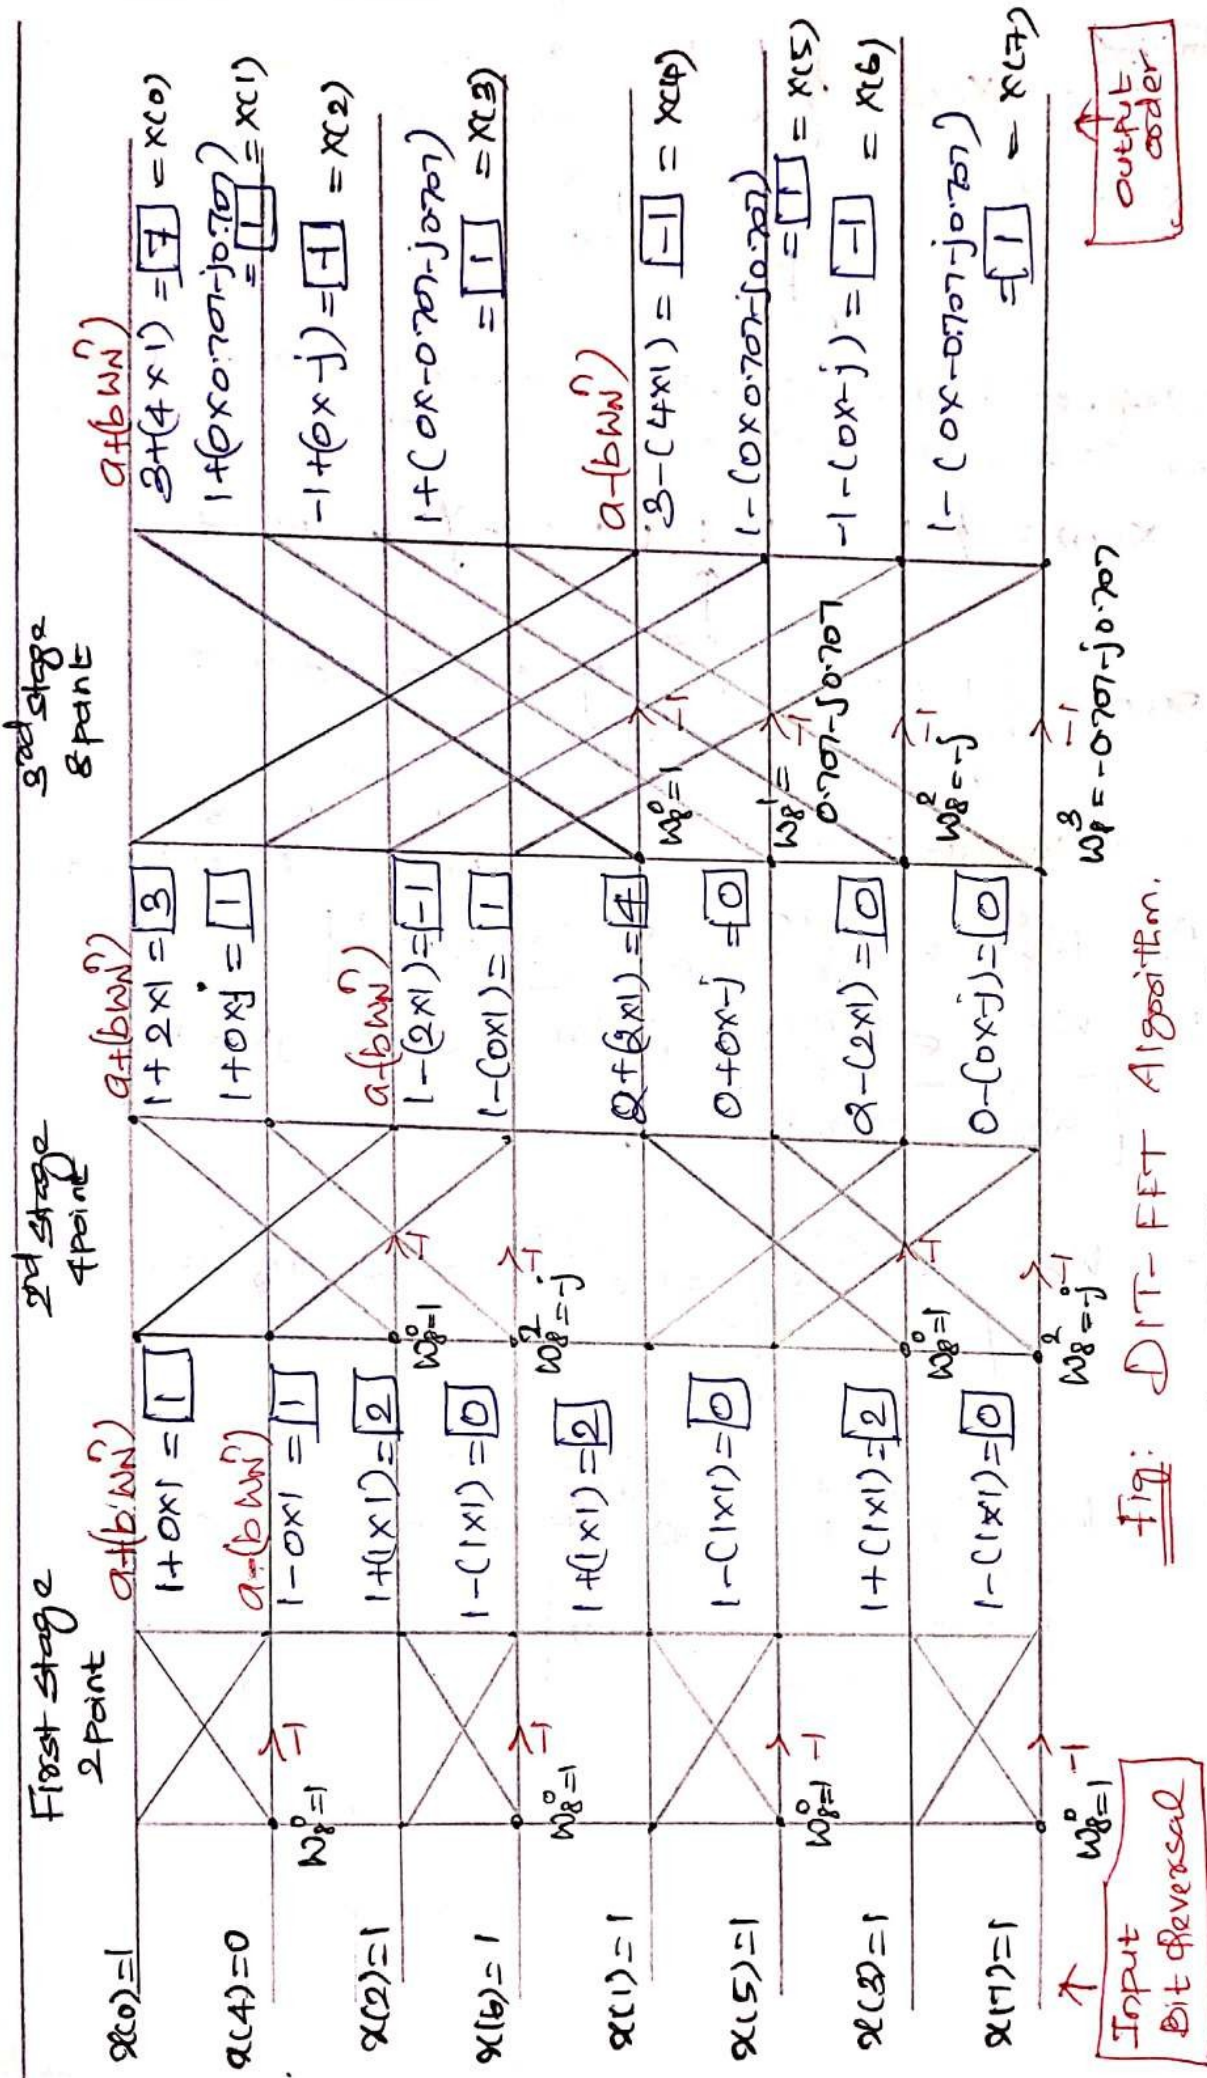 First stage
2 point
2nd stage
4 point
3rd stage
8 point
x(0)=1
x(4)=0
x(2)=1
x(6)=1
x(1)=1
x(5)=1
x(3)=1
x(7)=1
Input
Bit Reversal
W₈⁰=1
-1
W₈⁰=1
-1
W₈⁰=1
-1
W₈⁰=1
-1
a+(b Wₙⁿ)
1+0×1 = 1
a-(b Wₙⁿ)
1-0×1 = 1
1+(1×1)=2
1-(1×1)=0
1+(1×1)=2
1-(1×1)=0
1+(1×1)=2
1-(1×1)=0
W₈⁰=1
-1
W₈²=-j
-1
W₈⁰=1
-1
W₈²=-j
-1
a+(b Wₙⁿ)
1+2×1=3
1+0×j=1
a-(b Wₙⁿ)
1-(2×1)=-1
1-(0×1)=1
2+(2×1)=4
0+0×-j=0
2-(2×1)=0
0-(0×-j)=0
W₈⁰=1
-1
W₈¹=
0.707-j0.707
-1
W₈²=-j
-1
W₈³=-0.707-j0.707
-1
a+(b Wₙⁿ)
3+(4×1)=7=X(0)
1+(0×0.707-j0.707)
=1=X(1)
-1+(0×-j)=-1=X(2)
1+(0×-0.707-j0.707)
=1=X(3)
a-(b Wₙⁿ)
3-(4×1)=-1=X(4)
1-(0×0.707-j0.707)
=1=X(5)
-1-(0×-j)=-1=X(6)
1-(0×-0.707-j0.707)
=1-X(7)
output
order
Fig: DIT-FFT Algorithm.